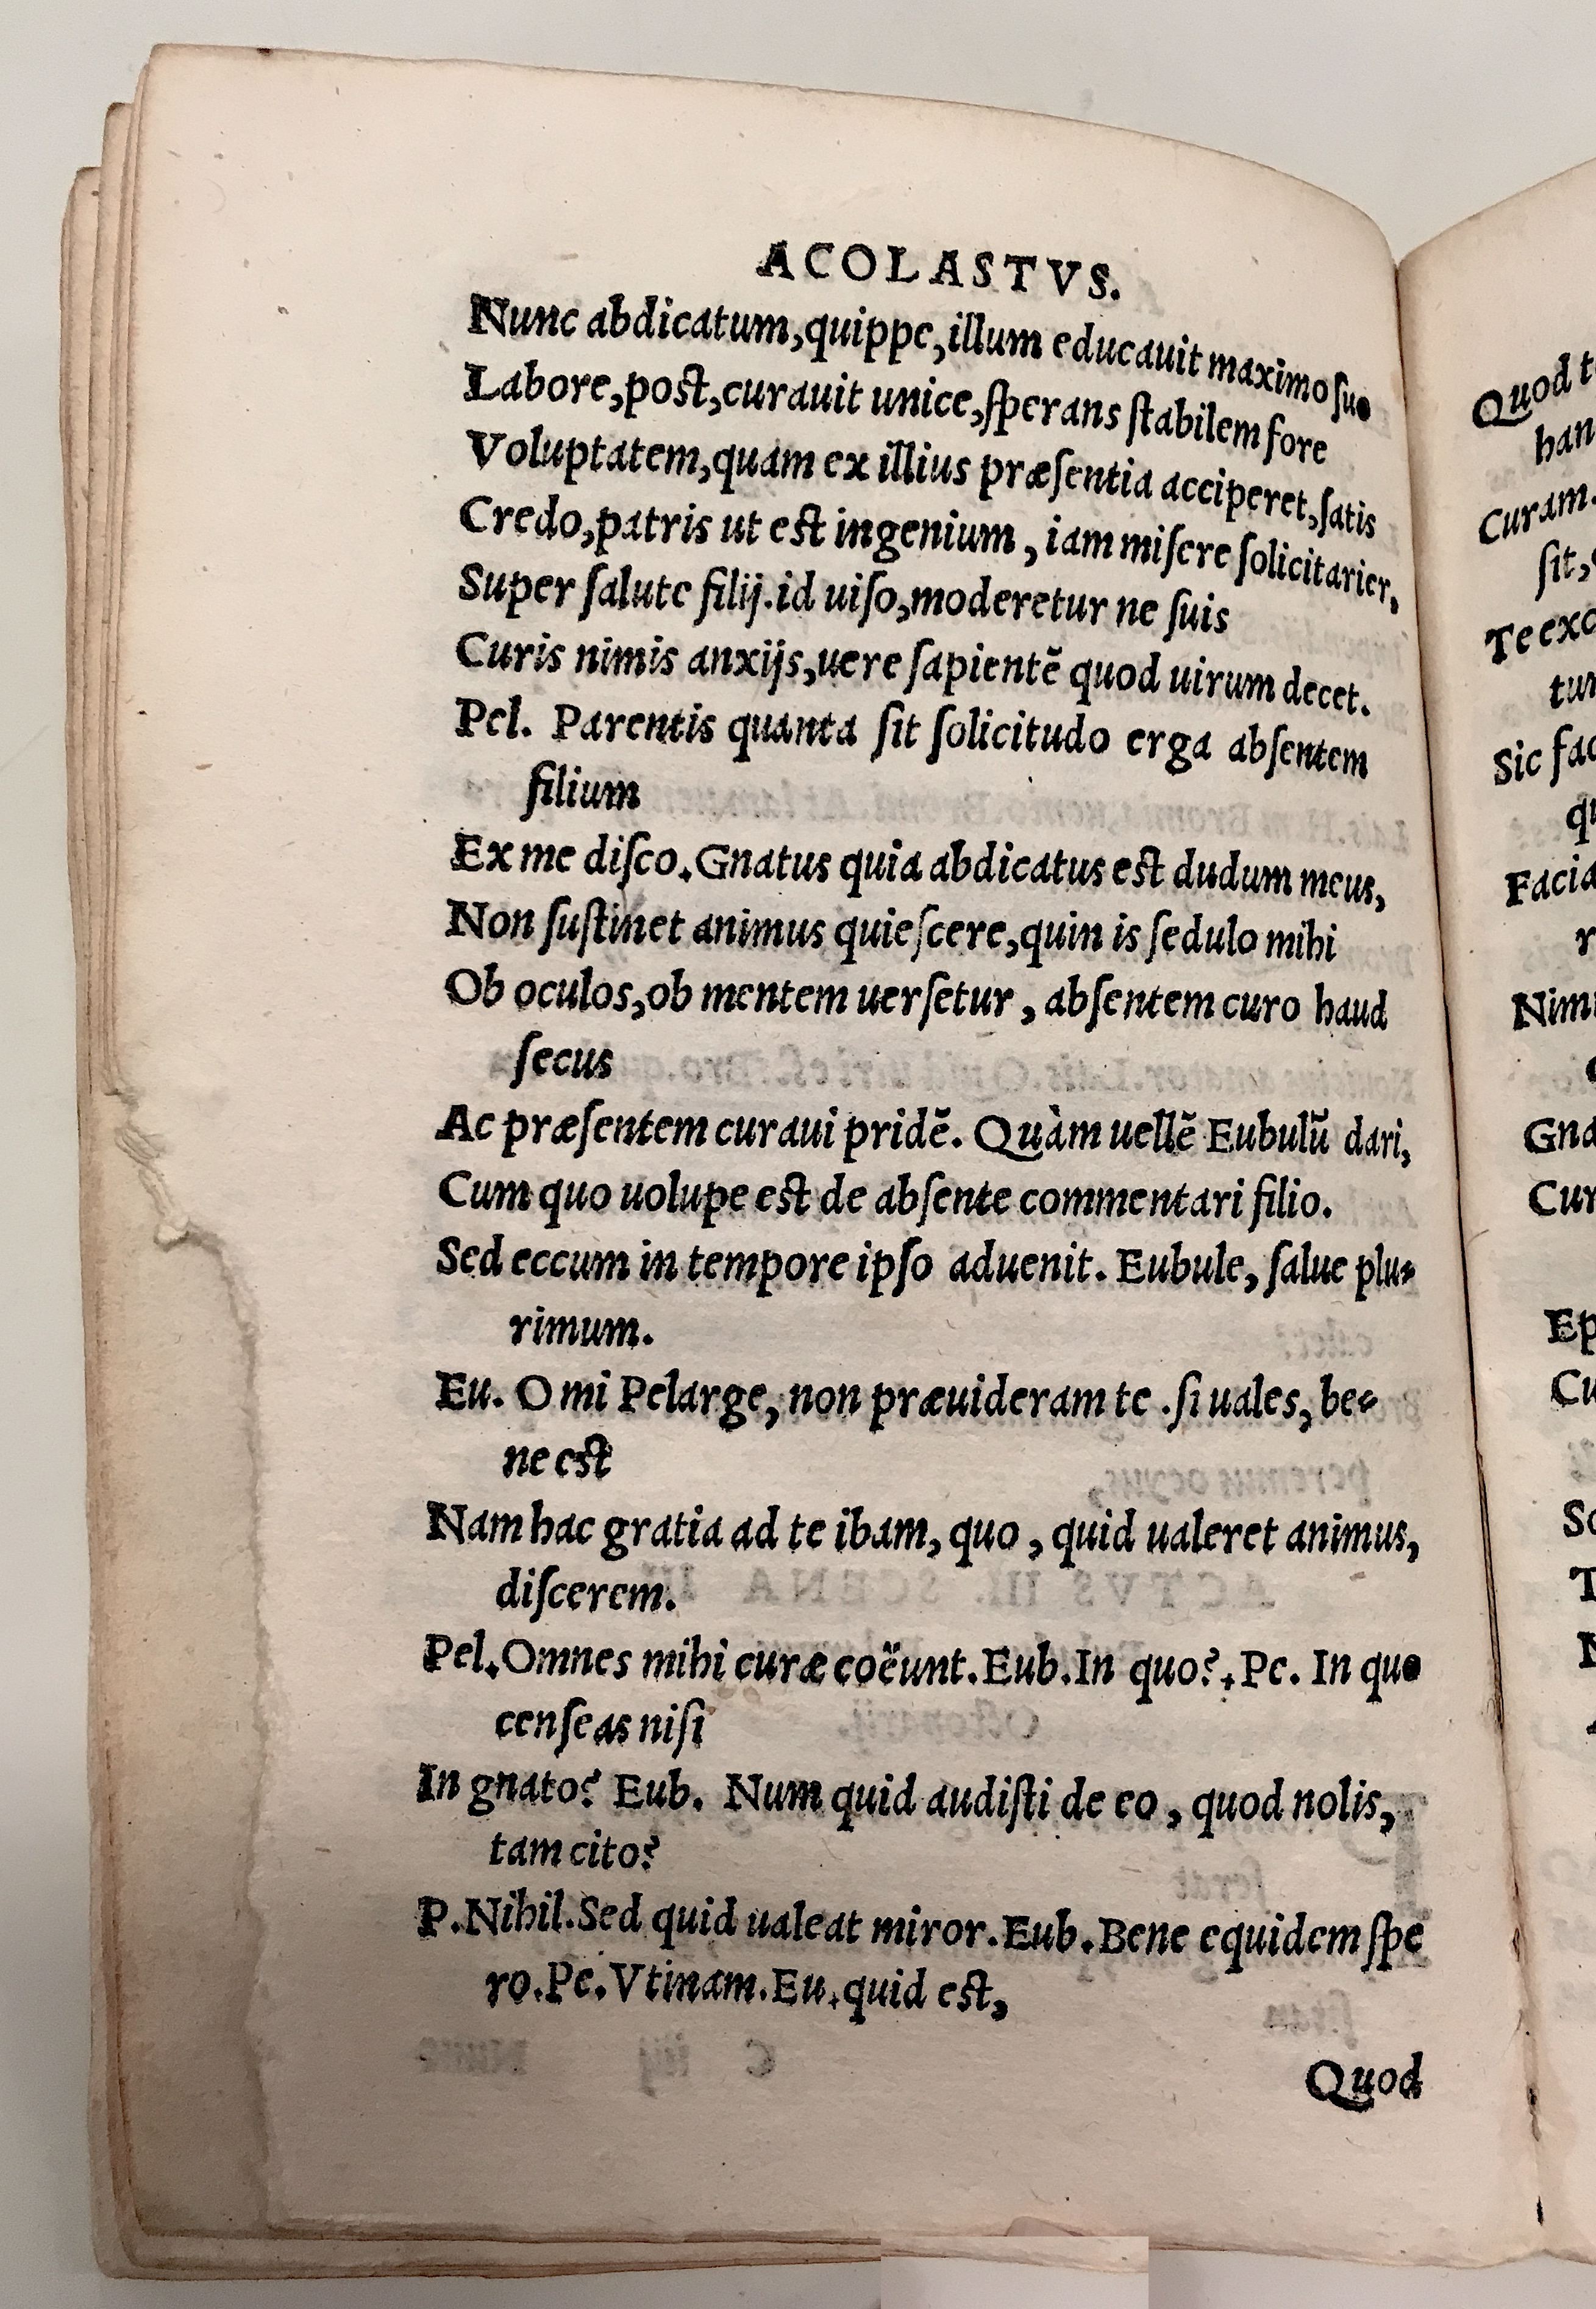 ACOLASTVS.
Nunc abdicatum,quippe,illum educauit maximo ſuo
Labore,poſt,curauit unice,ſperans ſtabilem fore
Voluptatem,quam ex illius præſentia acciperet,ſatis
Credo,patris ut eſt ingenium, iam miſere ſolicitarier,
Super ſalute filij.id uiſo,moderetur ne ſuis
Curis nimis anxijs,uere ſapientē quod uirum decet.
Pel. Parentis quanta ſit ſolicitudo erga abſentem
filium
Ex me diſco.Gnatus quia abdicatus eſt dudum meus,
Non ſuſtinet animus quieſcere,quin is ſedulo mihi
Ob oculos,ob mentem uerſetur, abſentem curo haud
ſecus
Ac præſentem curaui pridē. Quàm uellē Eubulū dari,
Cum quo uolupe eſt de abſente commentari filio.
Sed eccum in tempore ipſo aduenit. Eubule, ſalue plu-
rimum.
Eu. O mi Pelarge, non præuideram te .ſi uales, be-
ne eſt
Nam hac gratia ad te ibam, quo, quid ualeret animus,
diſcerem.
Pel.Omnes mihi curæ coëunt.Eub.In quo?.Pe. In quo
cenſeas niſi
In gnato? Eub. Num quid audiſti de eo, quod nolis,
tam cito?
P.Nihil.Sed quid ualeat miror.Eub.Bene equidem ſpe
ro.Pe.Vtinam.Eu.quid eſt,
Quod
Quod
han
Curam.
ſit,
Te exc
tur
Sic fac
qu
Facia
r
Nim
Gna
Cur
Ep
Cu
So
T
N